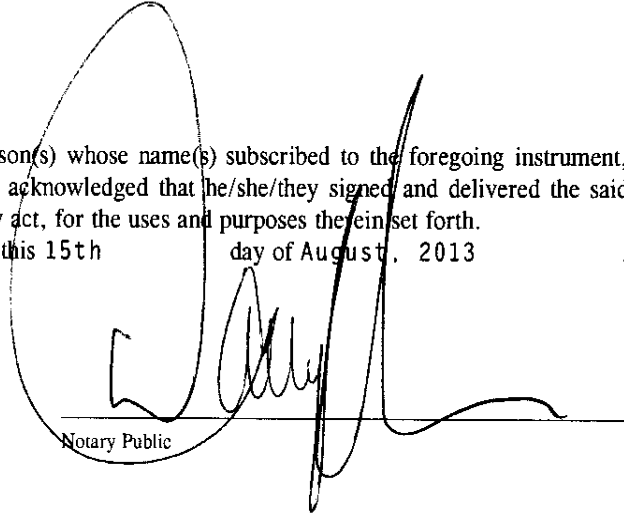 son(s) whose name(s) subscribed to the foregoing instrument,
acknowledged that he/she/they signed and delivered the said
act, for the uses and purposes therein set forth.
this 15th day of August, 2013
Notary Public